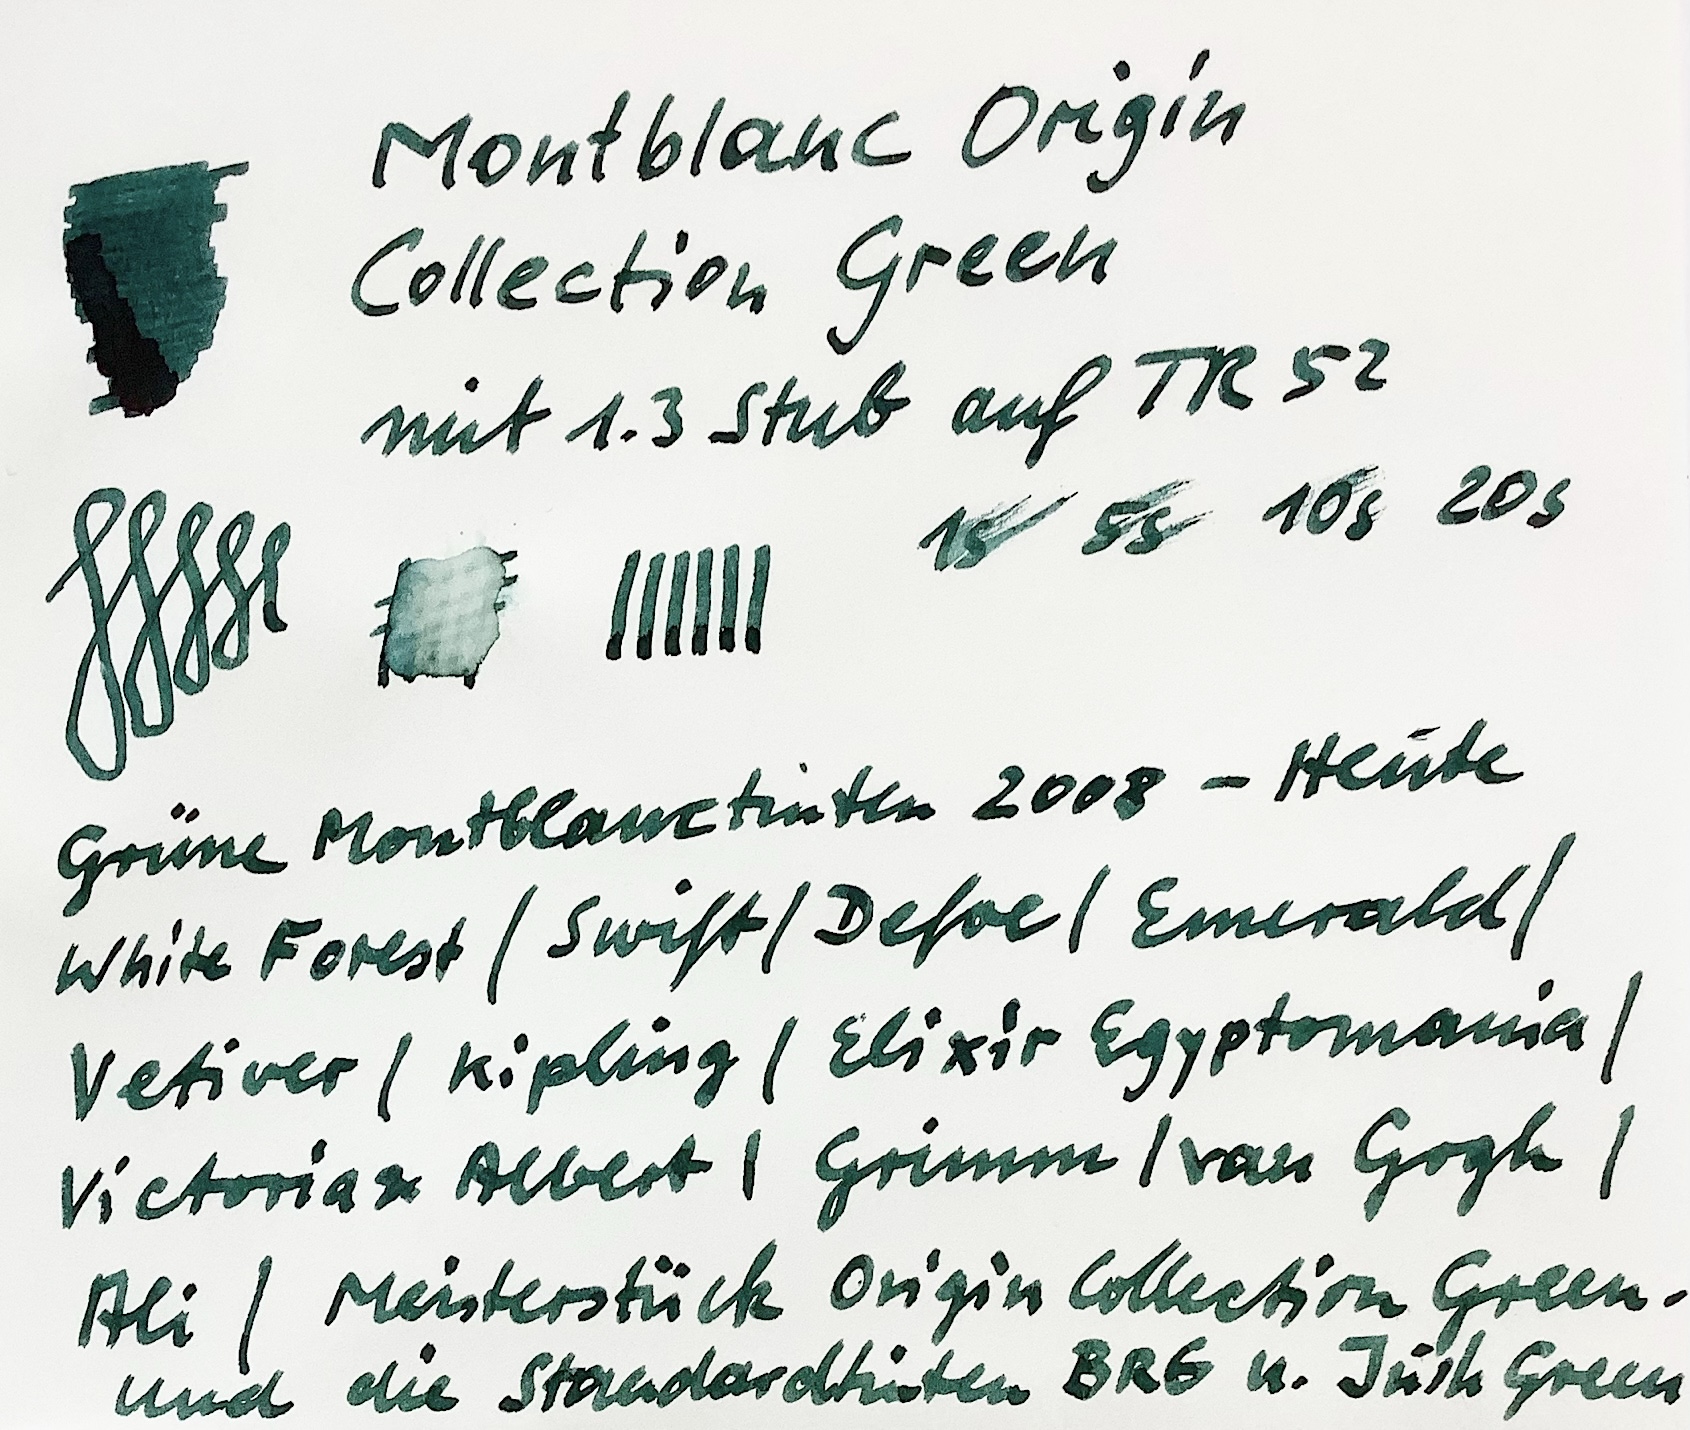 Montblanc Origin
Collection Green
mit 1.3 Stub auf TR 52
1s 5s 10s 20s
Grüne Montblanctinten 2008 – Heute
White Forest / Swift / Defoe / Emerald /
Vetiver / Kipling / Elixir Egyptomania /
Victoria & Albert / Grimm / van Gogh /
Ali / Meisterstück Origin Collection Green.
und die Standardtinten BRG u. Irish Green